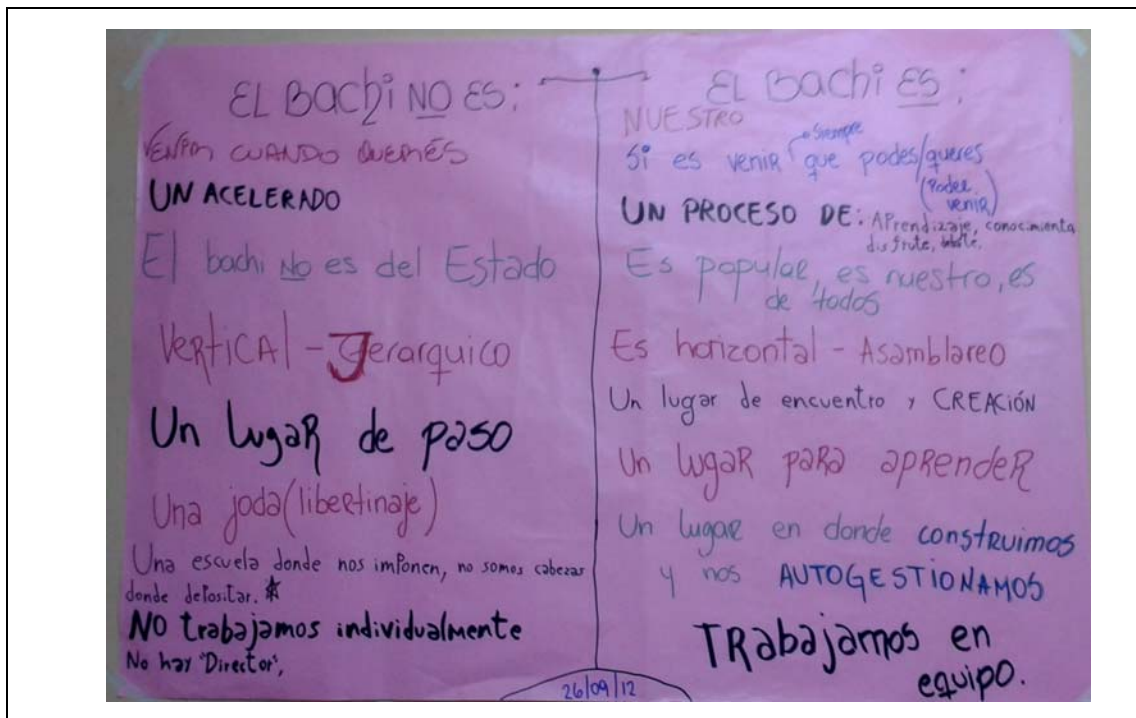 EL BACHI NO ES:
VENIR CUANDO QUERÉS
UN ACELERADO
El bachi NO es del Estado
VERTICAL - Jerarquico
Un lugaR de paso
Una joda (libertinaje)
Una escuela donde nos imponen, no somos cabezas
donde depositar. *
NO trabajamos individualmente
No hay "Director",
EL BACHI ES:
NUESTRO
Sí es veniR siempre que podes/queres
(Poder
venir)
UN PROCESO DE: APrendizaje, conocimiento,
disfrute, debate.
Es populaR, es nuestro, es
de todos
Es horizontal - Asamblareo
Un lugar de encuentro y CREACIÓN
Un lugaR paRa apRendeR
Un lugaR en donde constRuimos
y nos AUTOGESTIONAMOS
TRabajamos en
equipo.
26/09/12